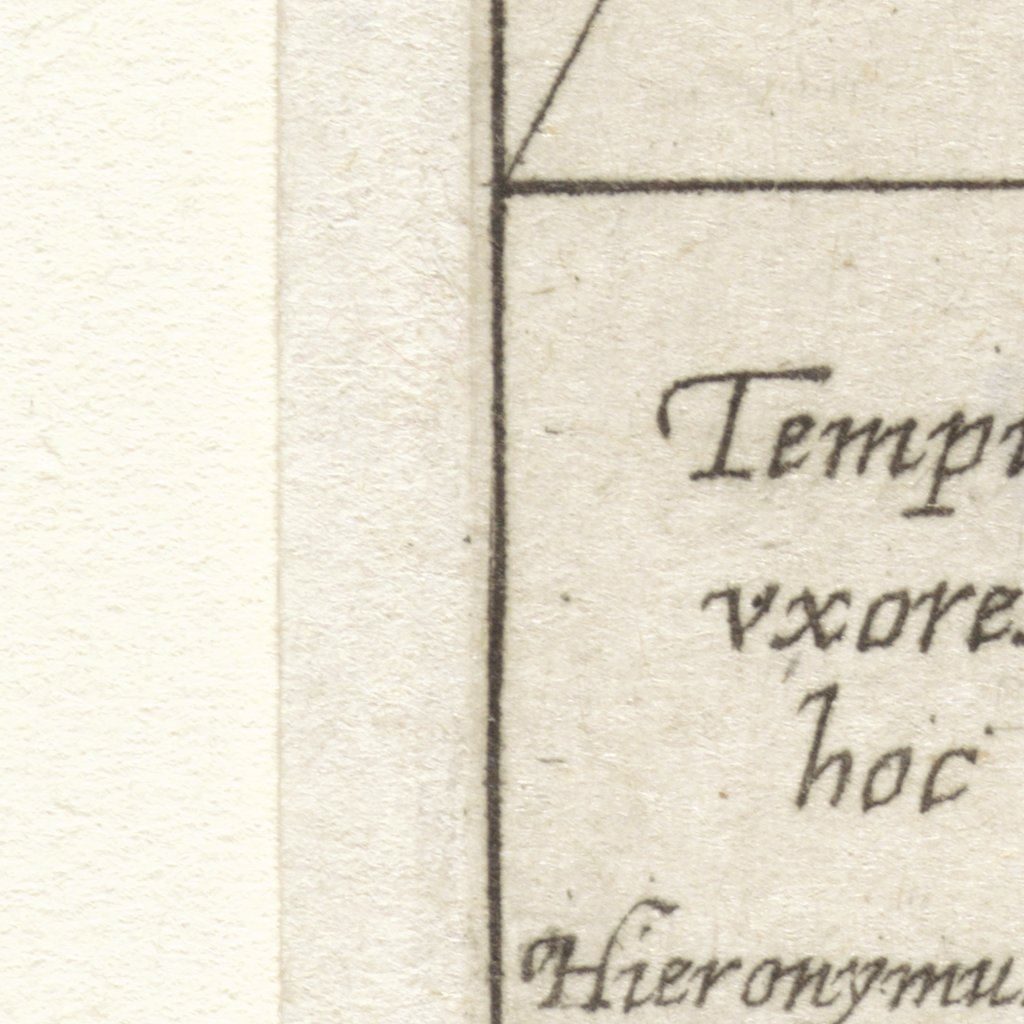 Templ
vxores
hoc
Hieronymus